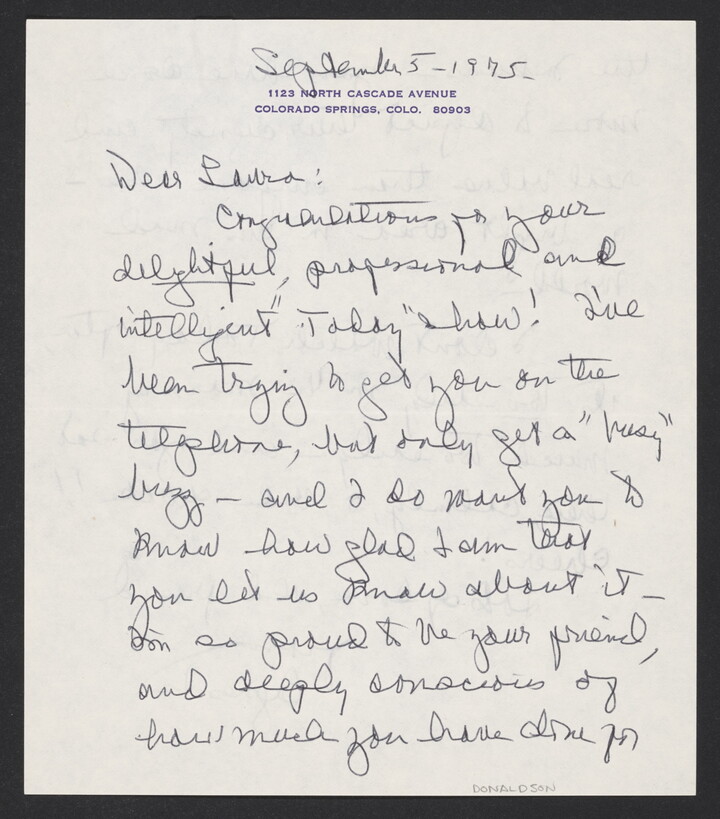 September 5 - 1975 -
1123 NORTH CASCADE AVENUE
COLORADO SPRINGS, COLO. 80903
Dear Laura:
Congratulations for your
delightful, professional and
intelligent "Today" show! I've
been trying to get you on the
telephone, but only get a "busy"
buzz - and I do want you to
know how glad I am that
you let us know about it -
I'm so proud to be your friend,
and deeply conscious of
how much you have done for
DONALDSON